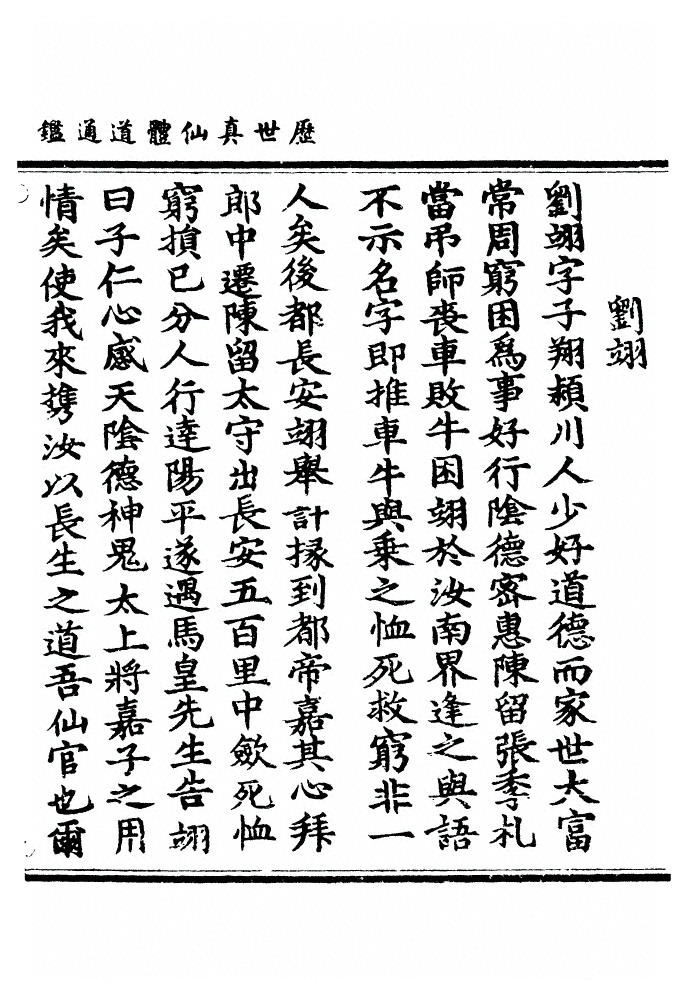 歷世真仙體道通鑑
劉翊
劉翊字子翔潁川人少好道德而家世大富
常周窮困為事好行陰德密惠陳留張季札
當弔師喪車敗牛困翊於汝南界逢之與語
不示名字即推車牛與乗之恤死救窮非一
人矣後都長安翊舉計掾到都帝嘉其心拜
郎中遷陳留太守出長安五百里中斂死恤
窮損已分人行達陽平遂遇馬皇先生告翊
曰子仁心感天陰德神鬼太上將嘉子之用
情矣使我來携汝以長生之道吾仙官也爾